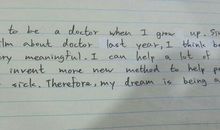 to be a doctor when I grow up. Si
ilm about doctor last year, I think be
ry meaningful. I can help a lot of
invent more new method to help p
sick. Therefore, my dream is being a